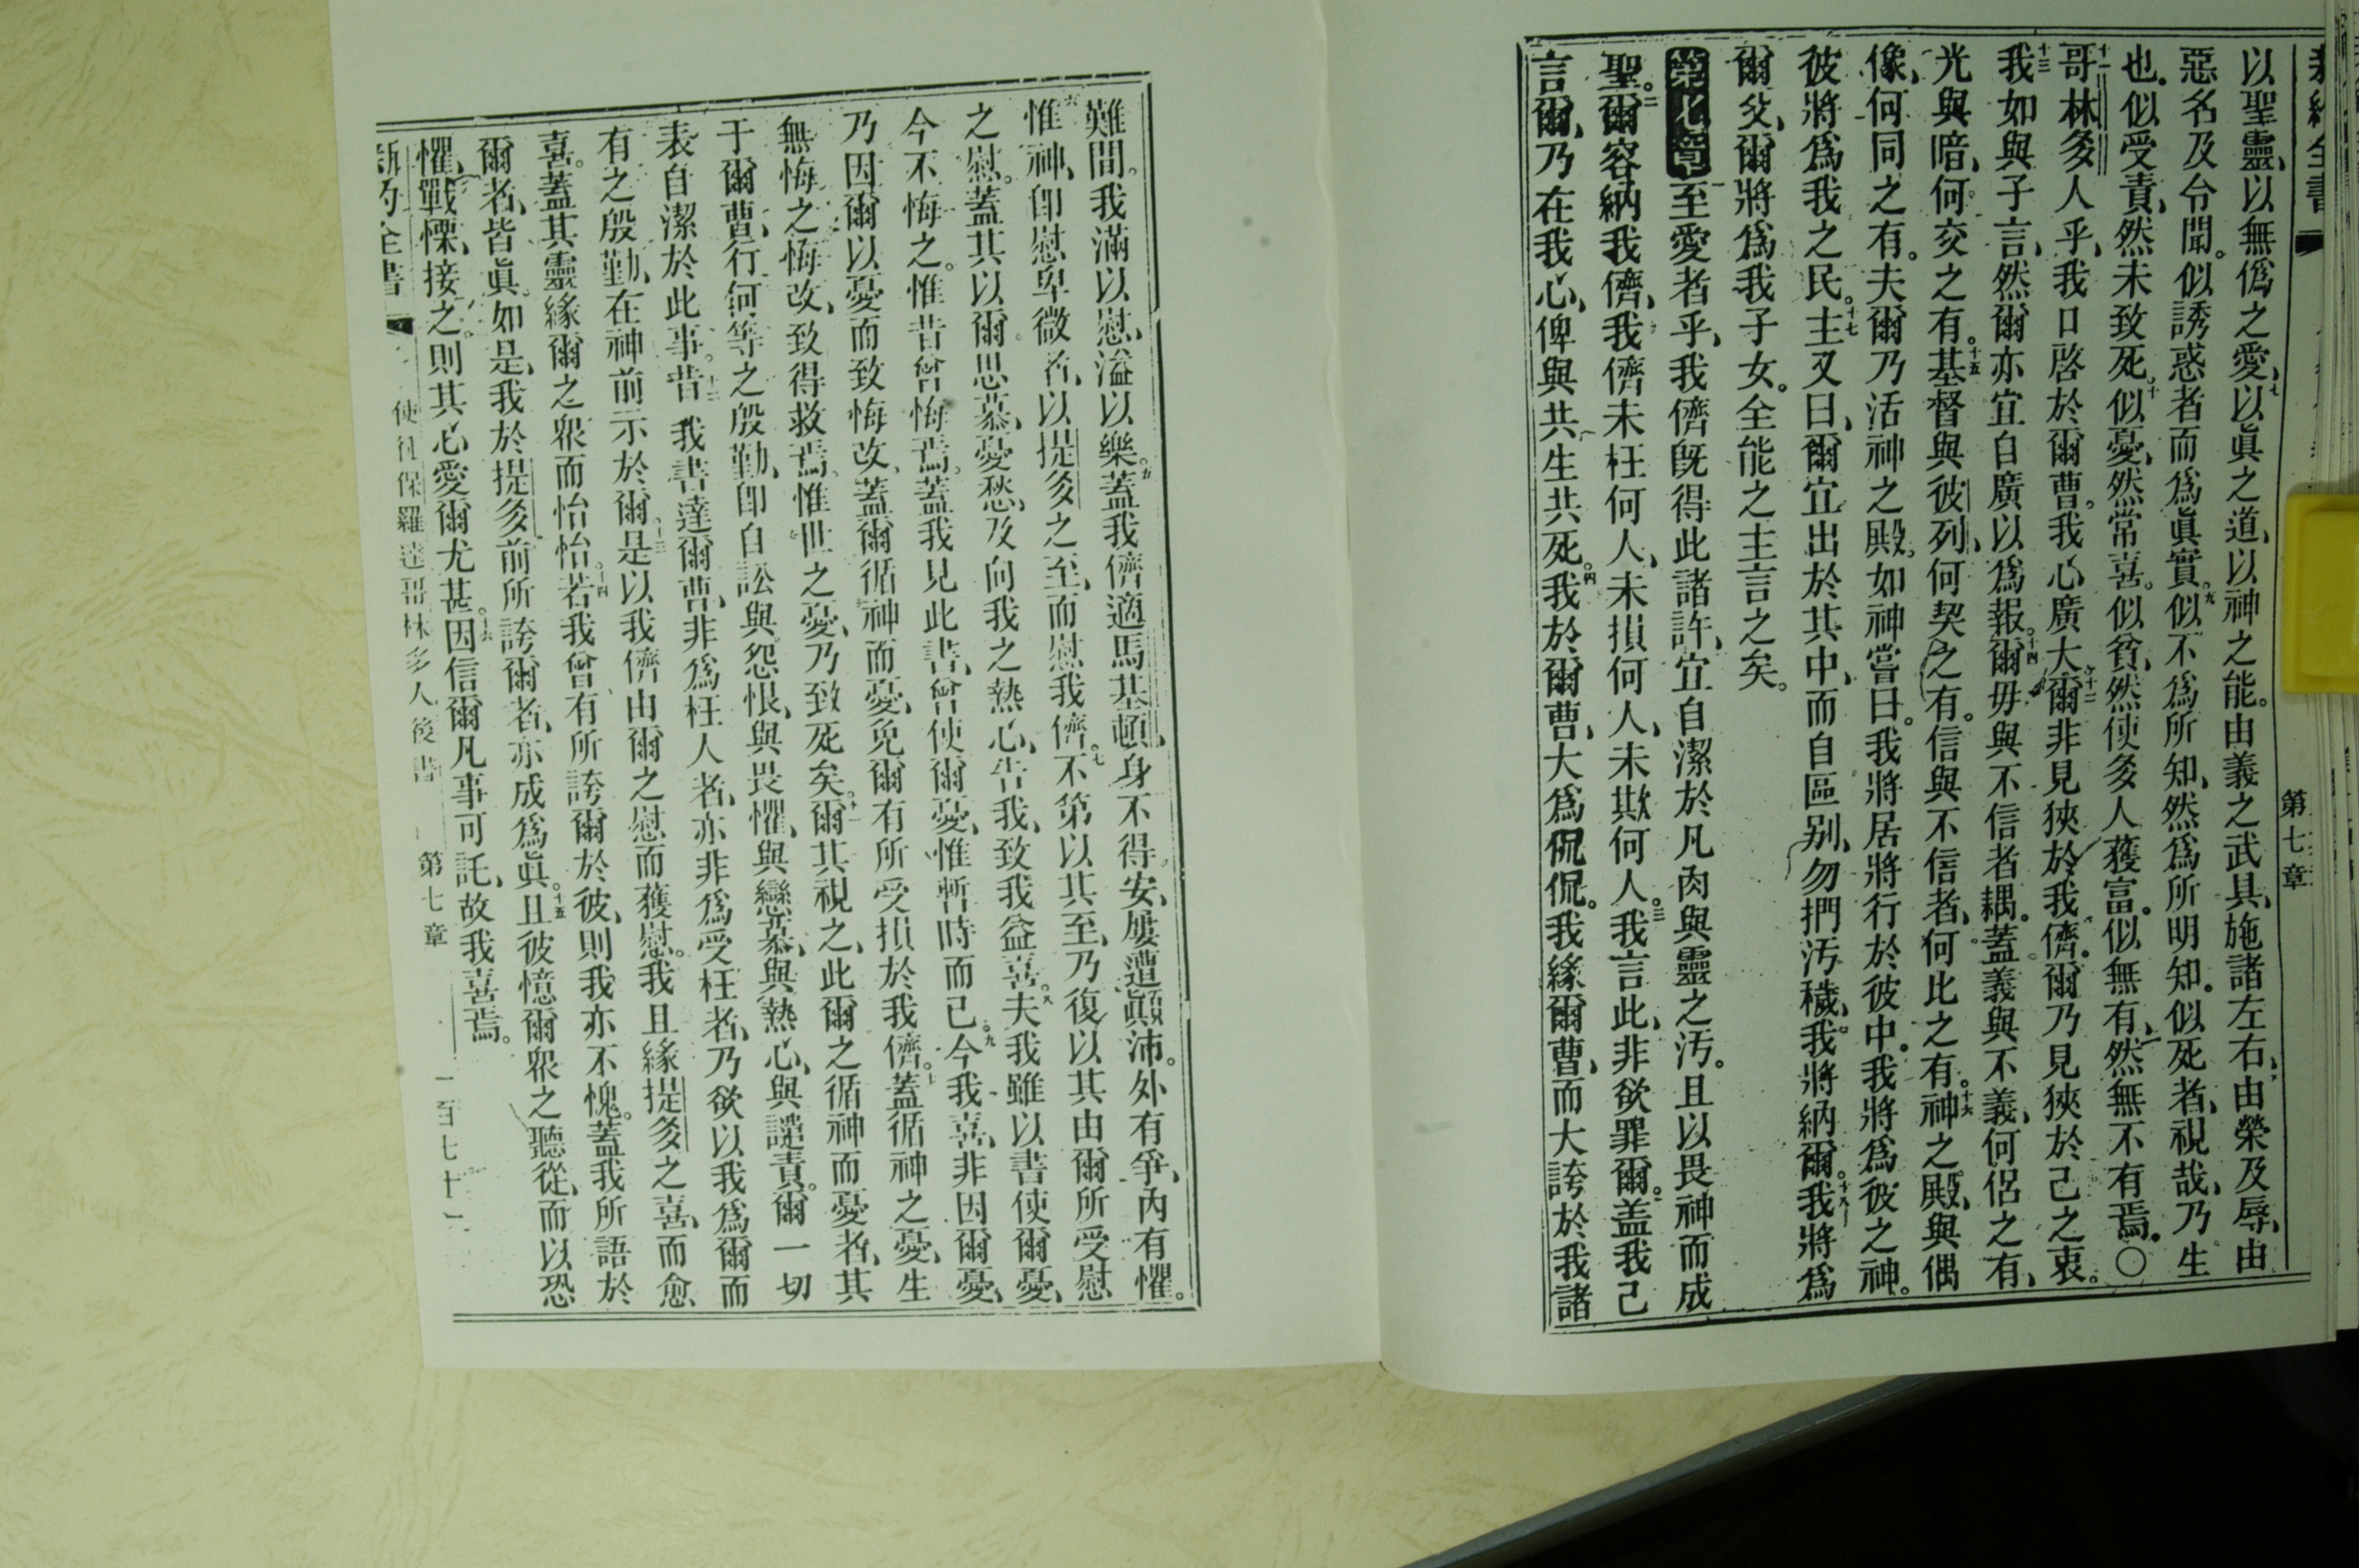 第七章
以聖靈、以無僞之愛、七以眞之道、以神之能。由義之武具、施諸左右、由榮及辱、由
惡名及令聞。似誘惑者而爲眞實。九似不爲所知、然爲所明知。似死者、視哉、乃生
也。似受責、然未致死。十似憂、然常喜。似貧、然使多人獲富。似無有、然無不有焉。〇
十一哥林多人乎、我口啓於爾曹。我心廣大。十二爾非見狹於我儕。爾乃見狹於己之衷。
十三我如與子言、然爾亦宜自廣以爲報。十四爾毋與不信者耦。蓋義與不義、何侶之有、
光與暗、何交之有。十五基督與彼列、何契之有。信與不信者、何比之有。十六神之殿、與偶
像、何同之有。夫爾乃活神之殿。如神嘗曰。我將居將行於彼中。我將爲彼之神。
彼將爲我之民。十七主又曰、爾宜出於其中、而自區别、勿捫汚穢、我將納爾。十八我將爲
爾父、爾將爲我子女。全能之主言之矣。
第七章至愛者乎、我儕既得此諸許、宜自潔於凡肉與靈之汚。且以畏神而成
聖。二爾容納我儕、我儕未枉何人、未損何人、未欺何人。三我言此、非欲罪爾。蓋我已
言爾、乃在我心、俾與共生共死。四我於爾曹、大爲侃侃。我緣爾曹、而大誇於我諸
難間。我滿以慰、溢以樂。五蓋我儕適馬基頓、身不得安、屢遭顚沛。外有爭、內有懼。
六惟神、卽慰卑微者、以提多之至、而慰我儕。七不第以其至、乃復以其由爾所受慰
之慰。蓋其以爾思慕、憂愁、及向我之熱心、吿我、致我益喜。八夫我雖以書使爾憂、
今不悔之。惟昔曾悔焉。蓋我見此書、曾使爾憂、惟暫時而已。九今我喜、非因爾憂、
乃因爾以憂而致悔改、蓋爾循神而憂、免爾有所受損於我儕。十蓋循神之憂、生
無悔之悔改、致得救焉。惟世之憂、乃致死矣。十一爾其視之、此爾之循神而憂者、其
于爾曹、行何等之殷勤、卽自訟與怨恨、與畏懼、與戀慕、與熱心、與譴責。爾一切
表自潔於此事。十二昔我書達爾曹、非爲枉人者、亦非爲受枉者、乃欲以我爲爾而
有之殷勤、在神前示於爾。十三是以我儕由爾之慰而獲慰。我且緣提多之喜、而愈
喜。蓋其靈緣爾之衆而怡怡。十四若我曾有所誇爾於彼、則我亦不愧。蓋我所語於
爾者、皆眞。如是、我於提多前所誇爾者、亦成爲眞。十五且彼憶爾衆之聽從、而以恐
懼、戰慄、接之。則其心愛爾尤甚。十六因信爾凡事可託、故我喜焉。
新約全書 使徒保羅達哥林多人後書 第七章 一百七十一